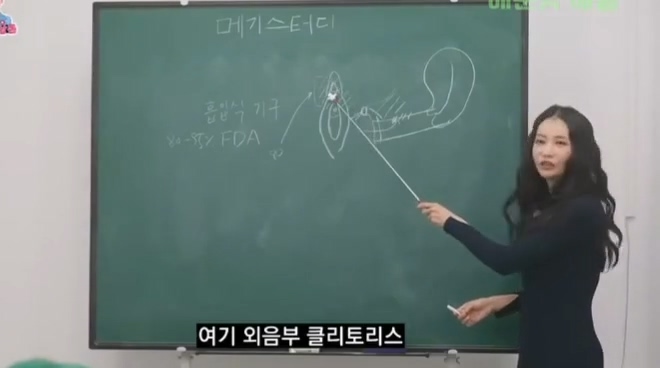 메기스터디
흡입식 기구
80-85% FDA
여기 외음부 클리토리스